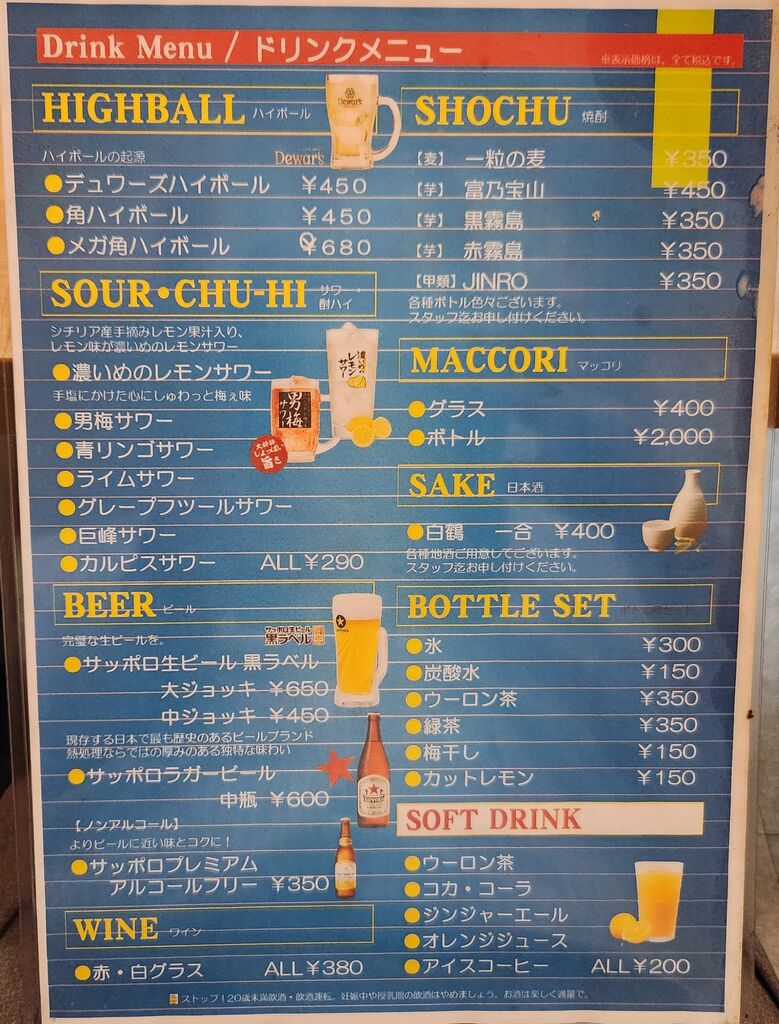 Drink Menu / ドリンクメニュー
※表示価格は、全て税込です。
HIGHBALL ハイボール
Dewar's
ハイボールの起源
Dewar's
●デュワーズハイボール ￥450
●角ハイボール ￥450
●メガ角ハイボール ￥680
SOUR・CHU-HI サワー・酎ハイ
シチリア産手摘みレモン果汁入り、
レモン味が濃いめのレモンサワー
●濃いめのレモンサワー
手塩にかけた心にしゅわっと梅ぇ味
●男梅サワー
●青リンゴサワー
●ライムサワー
●グレープフツールサワー
●巨峰サワー
●カルピスサワー ALL￥290
濃いめの
レモン
サワー
男梅
サワー
BEER ビール
完璧な生ビールを。
サッポロ生ビール
黒ラベル
●サッポロ生ビール 黒ラベル
大ジョッキ ￥650
中ジョッキ ￥450
現存する日本で最も歴史のあるビールブランド
熱処理ならではの厚みのある独特な味わい
●サッポロラガービール
中瓶 ￥600
【ノンアルコール】
よりビールに近い味とコクに！
●サッポロプレミアム
アルコールフリー ￥350
WINE ワイン
●赤・白グラス ALL￥380
SHOCHU 焼酎
【麦】 一粒の麦 ￥350
【芋】 富乃宝山 ￥450
【芋】 黒霧島 ￥350
【芋】 赤霧島 ￥350
【甲類】JINRO ￥350
各種ボトル色々ございます。
スタッフ迄お申し付けください。
MACCORI マッコリ
●グラス ￥400
●ボトル ￥2,000
SAKE 日本酒
●白鶴 一合 ￥400
各種地酒ご用意してございます。
スタッフ迄お申し付けください。
BOTTLE SET
●氷 ￥300
●炭酸水 ￥150
●ウーロン茶 ￥350
●緑茶 ￥350
●梅干し ￥150
●カットレモン ￥150
SOFT DRINK
●ウーロン茶
●コカ・コーラ
●ジンジャーエール
●オレンジジュース
●アイスコーヒー ALL￥200
ストップ！20歳未満飲酒・飲酒運転。妊娠中や授乳期の飲酒はやめましょう。お酒は楽しく適量で。